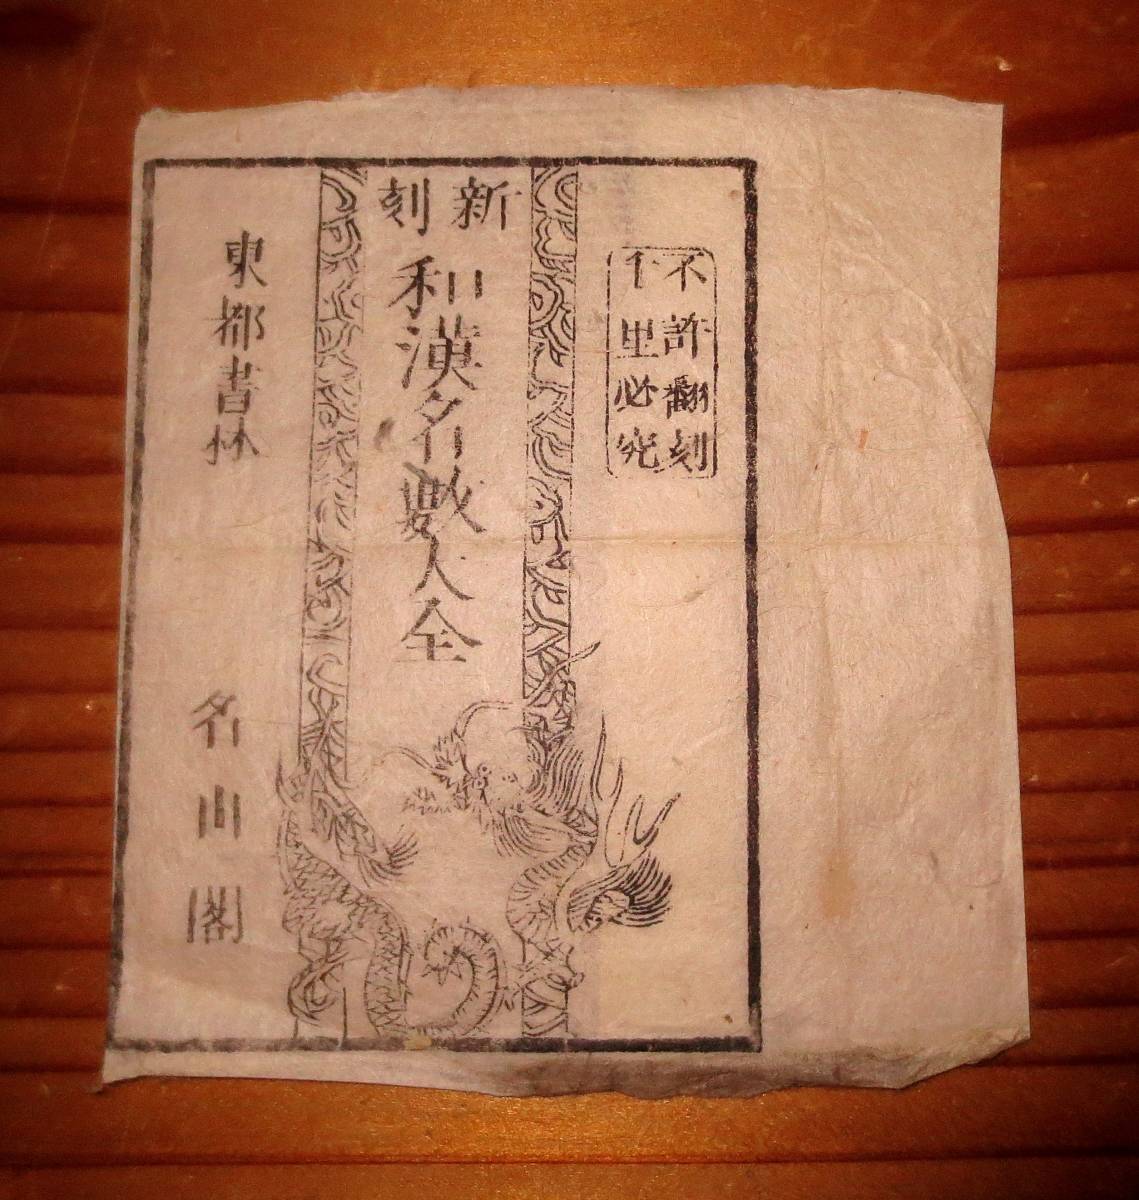 不許翻刻
千里必究
新刻
和漢名數大全
東都書林
名山閣